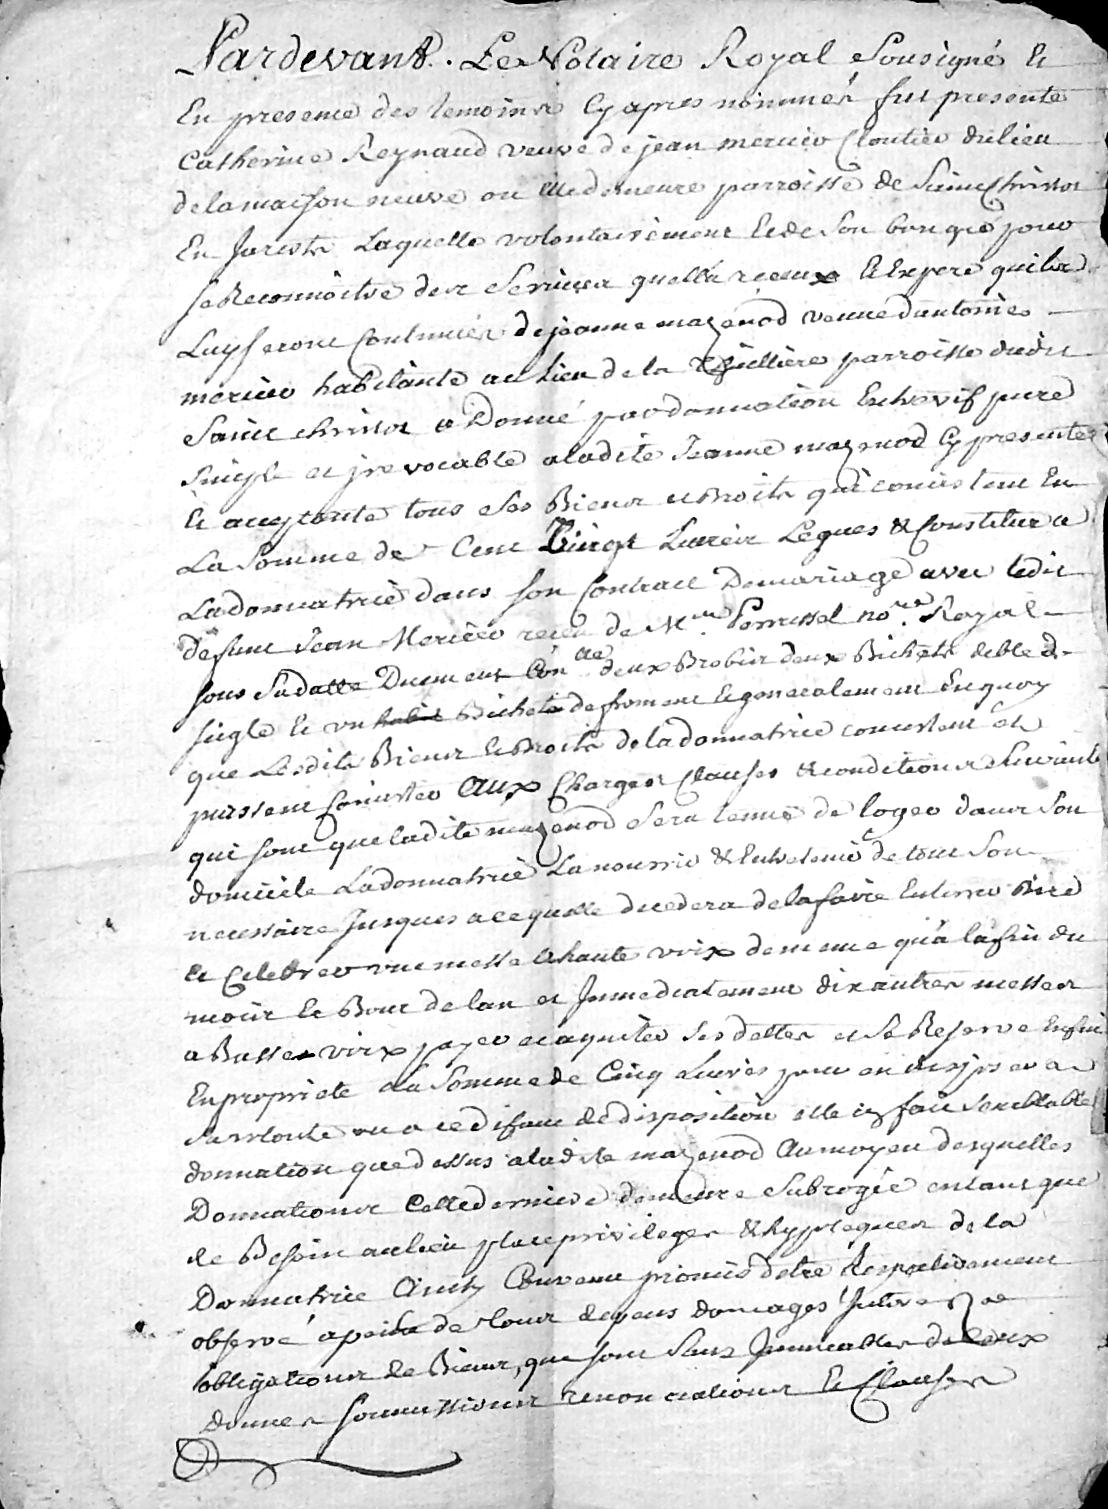 Pardevant. Le Notaire Royal Sousigné Et
En presence des temoins Cy apres nommés fut presente
Catherine Reynaud veuve de jean mercier Cloutier du lieu
de la maison neuve ou elle demeure parroisse de Sainct Christot
En Jarests Laquelle volontairement Et de Son bon gré pour
se Reconnoitre des Services quella receux Et Expere qui les
Luy seront Continués de jeanne mazenod veuve dantoine
mercier habitante au Lieu de la parroisse dudit
Sainct christot a Donné par donnation Entrevif pure
simple et jrevocable a ladite Jeanne mazenod Cy presente
Et acceptante tous Ses Biens et Droits qui consistent En
La Somme de Cent Vingt Livres Legues & Constitue a
La donnatrice dans son Contract De mariage avec ledit
defunt Jean Mercier receu de Mre. Perrussel nore. Royal
sous Sa datte Duement Conlée deux Brebis deux Bichets de bled
siegle Et un Bichet de froment Et generalement En quoy
que Lesdits Biens Et Droits de la donnatrice consistent Et
puissent Consister Aux Charges Clauses & conditions Suivante
qui sont que ladite mazenod Sera tenue de loger dans Son
domicile La donnatrice La nourrir & Entretenir de tout Son
necessaire Jusques a ce quelle decedera de la faire Enterrer Dire
Et Celebrer une messe a haute voix de meme qu'a la fin du
mois Et Bout de lan et Jmmediatement dix autres messes
a Basse voix payer et aquiter Ses dettes et Se Reserve Enfin
En proprieté la Somme de Cinq Livres pour en disposer a
Sa volonté ou a ce difaut de disposition elle en fait Semblable
donnation que dessus a ladite mazenod Au moyen desquelles
Donnations Cette derniere demeure Subrogée en tant que
de Besoin au lieu place privileges & hypoteques de la
Donnatrice Ainsy Convenu promis detre Respectivement
observé a peine de tous depens domages Jnterets
obligations de Biens, que sont Sans Jmmeubles de deux
donnes soumissions renonciations Et Clauses